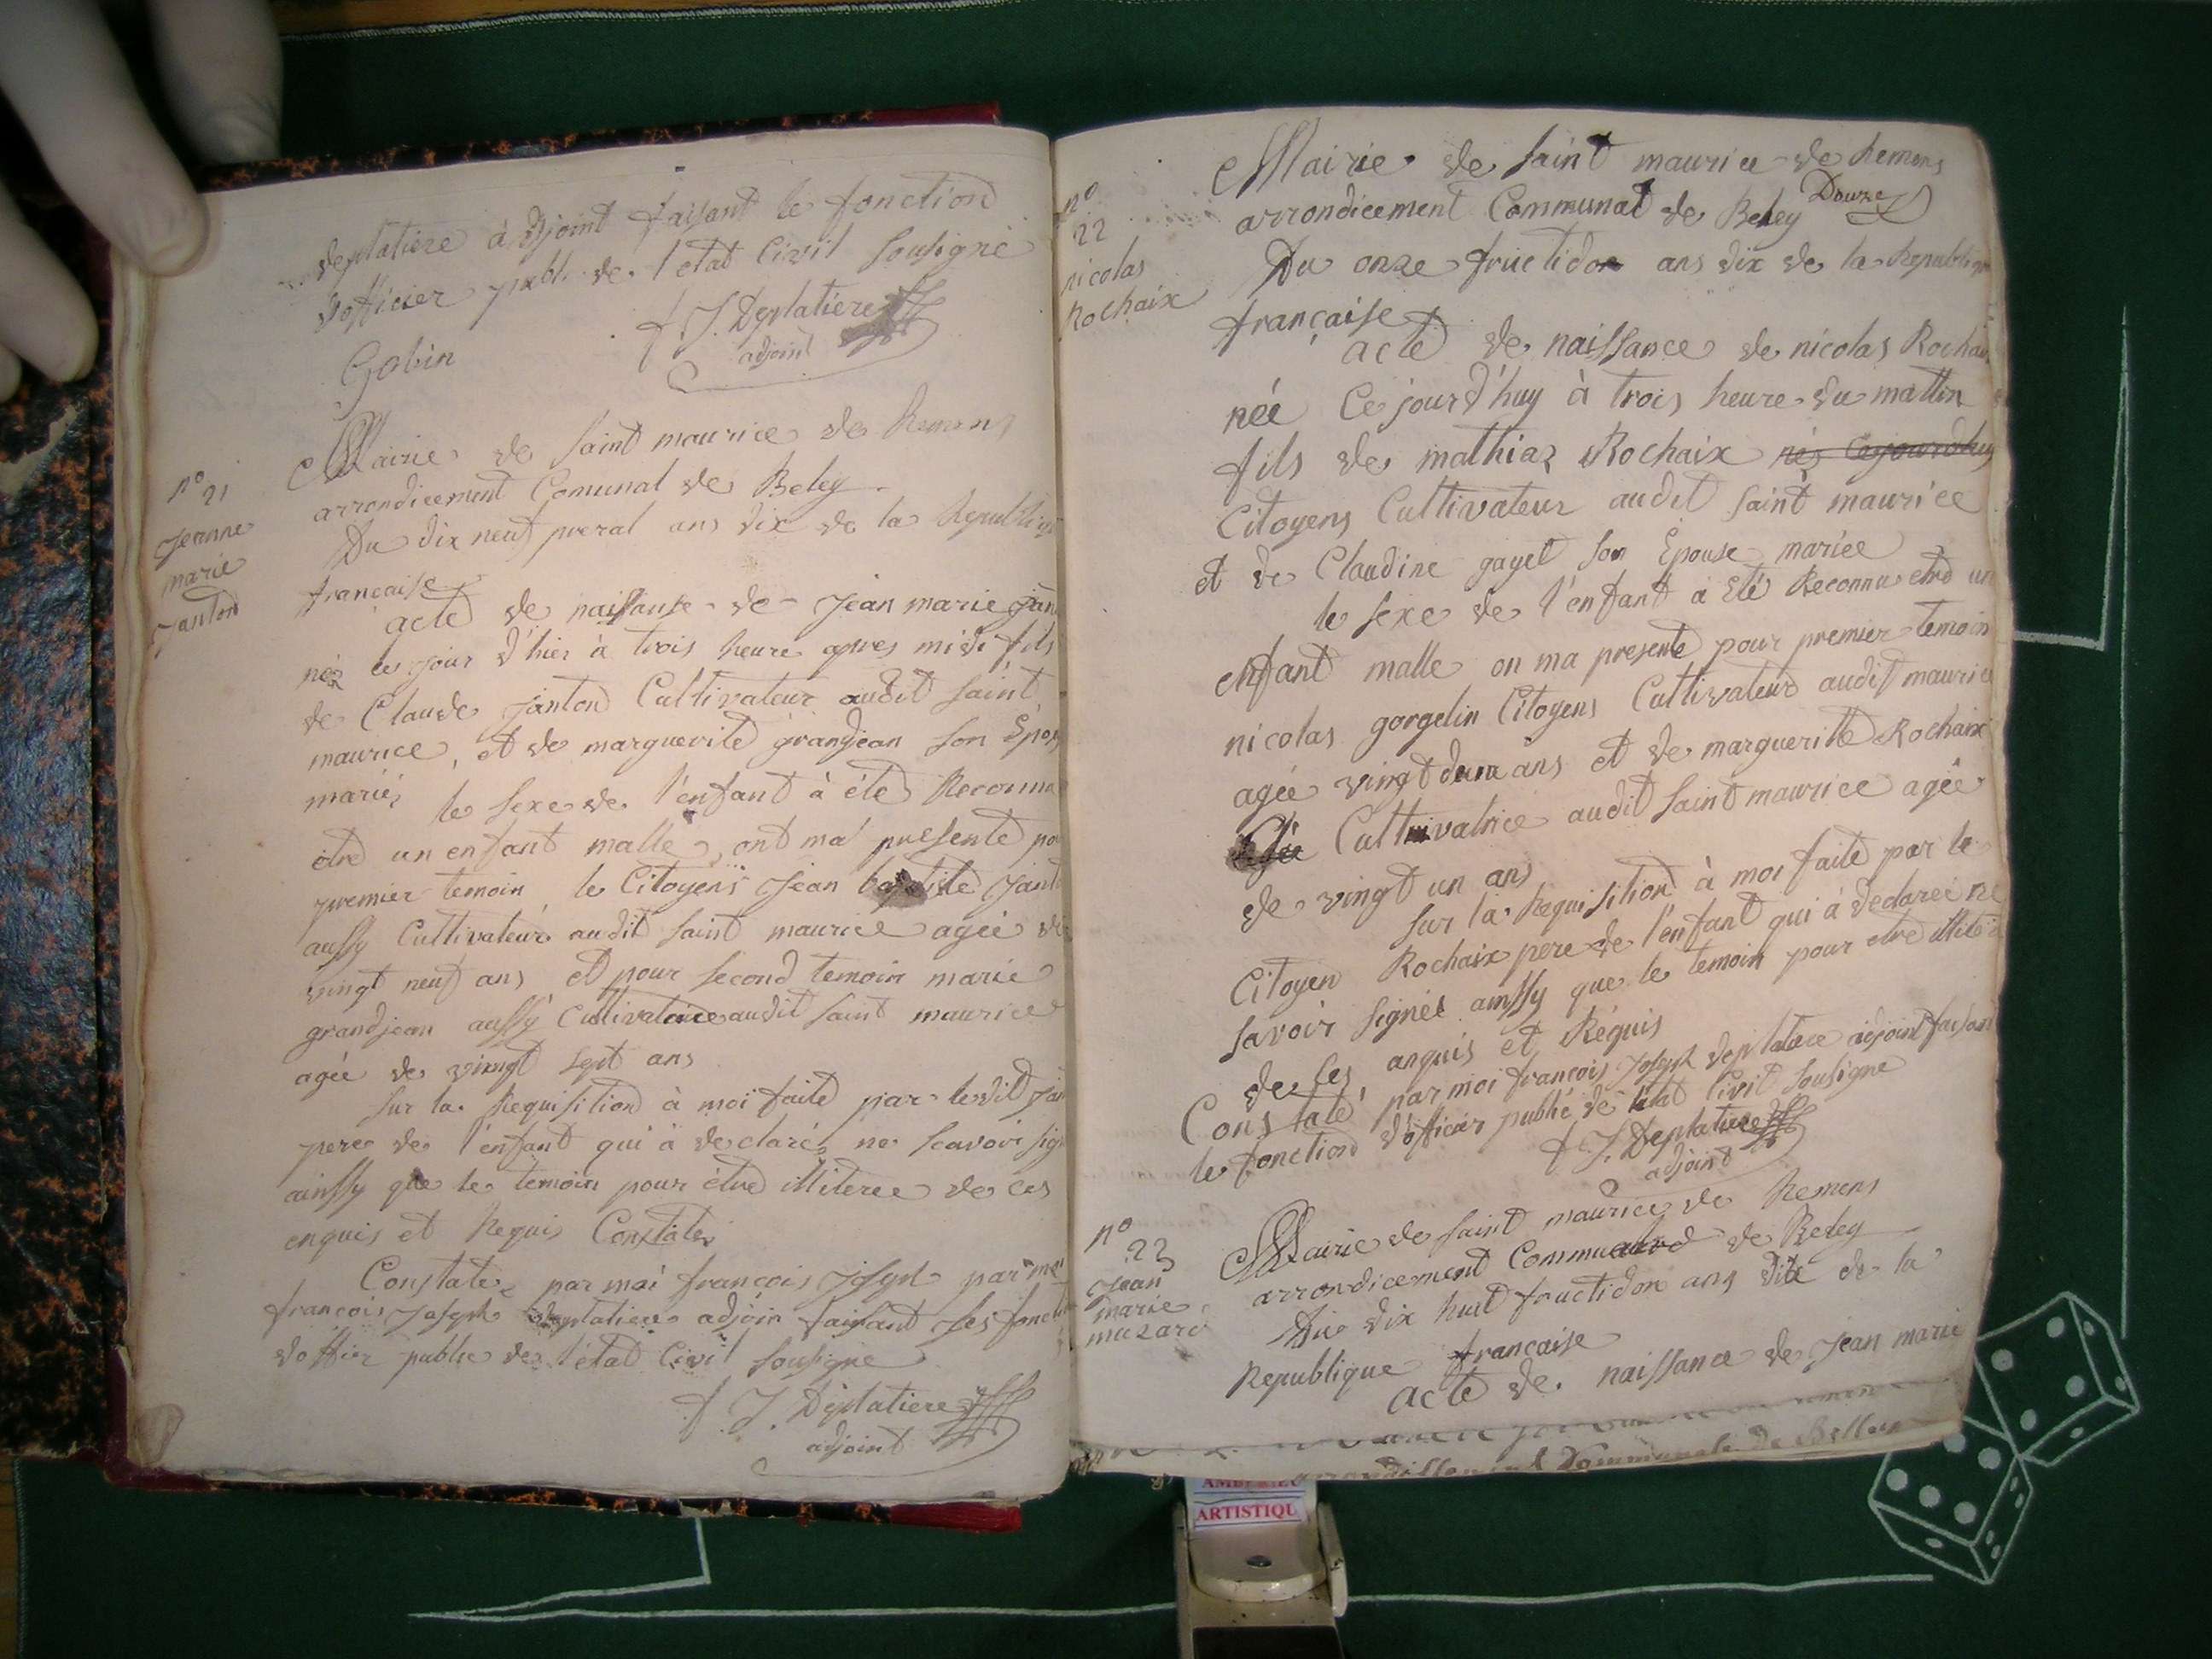 deplatiere adjoint faisant le fonction
dofficier publ. de l'etat Civil Sousigné
Gobin
f J. Deplatiere
adjoint
n° 21
jeanne
marie
janton
Mairie de Saint maurice de Remens
arrondicement Comunal de Beley
Du dix neuf preral ans dix de la Republiq
française
acte de naissanse de Jean marie jan
néz ce jour d'hier à trois heure apres midi fils
de Claude janton Cultivateur audit Saint
maurice, et de marguerite grandjean son Epou
mariéz
le sexe de l'enfant à été Reconnu
être un enfant malle, ont ma presente po
premier temoin le Citoyens Jean baptiste jant
aussy Cultivateur audit Saint maurice ageé de
vingt neuf ans et pour second temoin marie
grandjean aussy Cultivatrice audit Saint maurice
agée de vingt sept ans
Sur la Requisition à moi faite par ledit jan
pere de l'enfant qui à declaréz ne scavoir sign
ainssy que le temoin pour être illiteree de ces
enquis et Requis Constatéz
Constatéz par moi françois joseph par moi
françois Joseph deplatiere adjoin faisant les foncti
doffier publie de l'état Civil Sousigne
f J. Deplatiere
adjoint
n°
22
nicolas
Rochaix
Mairie de Saint maurice de Remens
arrondicement Communal de Beley
Douze
Du onze fructidor ans dix de la Republiq
française
acte de naissance de nicolas Rochaix
née Ce jourd'huy à trois heure du mattin
fils de mathiaz Rochaix né Cejourdhuy
Citoyens Cultivateur audit Saint maurice
et de Claudine gayet son Epouse mariee
le sexe de l'enfant à Eté Reconnu etre un
enfant malle on ma presente pour premier temoin
nicolas gorgelin Citoyens Cultivateur audit maurice
ageé vingt deux ans et de marguerite Rochaix
Cultivatrice audit Saint maurice agée
de vingt un ans
Sur la Requisition à moi faite par le
Citoyen Rochaix pere de l'enfant qui à declareé ne
savoir signés ainssy que le temoin pour etre
de Ces anquis et Réquis
Constaté par moi françois joseph deplatiere adjoint faisant
le fonction d'officier publié de l'état Civil Sousigne
f J. Deplatiere
adjoint
n°
23
Jean
marie
mazard
Mairie de Saint maurice de Remens
arrondicement de Beley
Du dix huit fructidor ans dix de la
Republique française
acte de naissance de Jean marie
ARTISTIQU